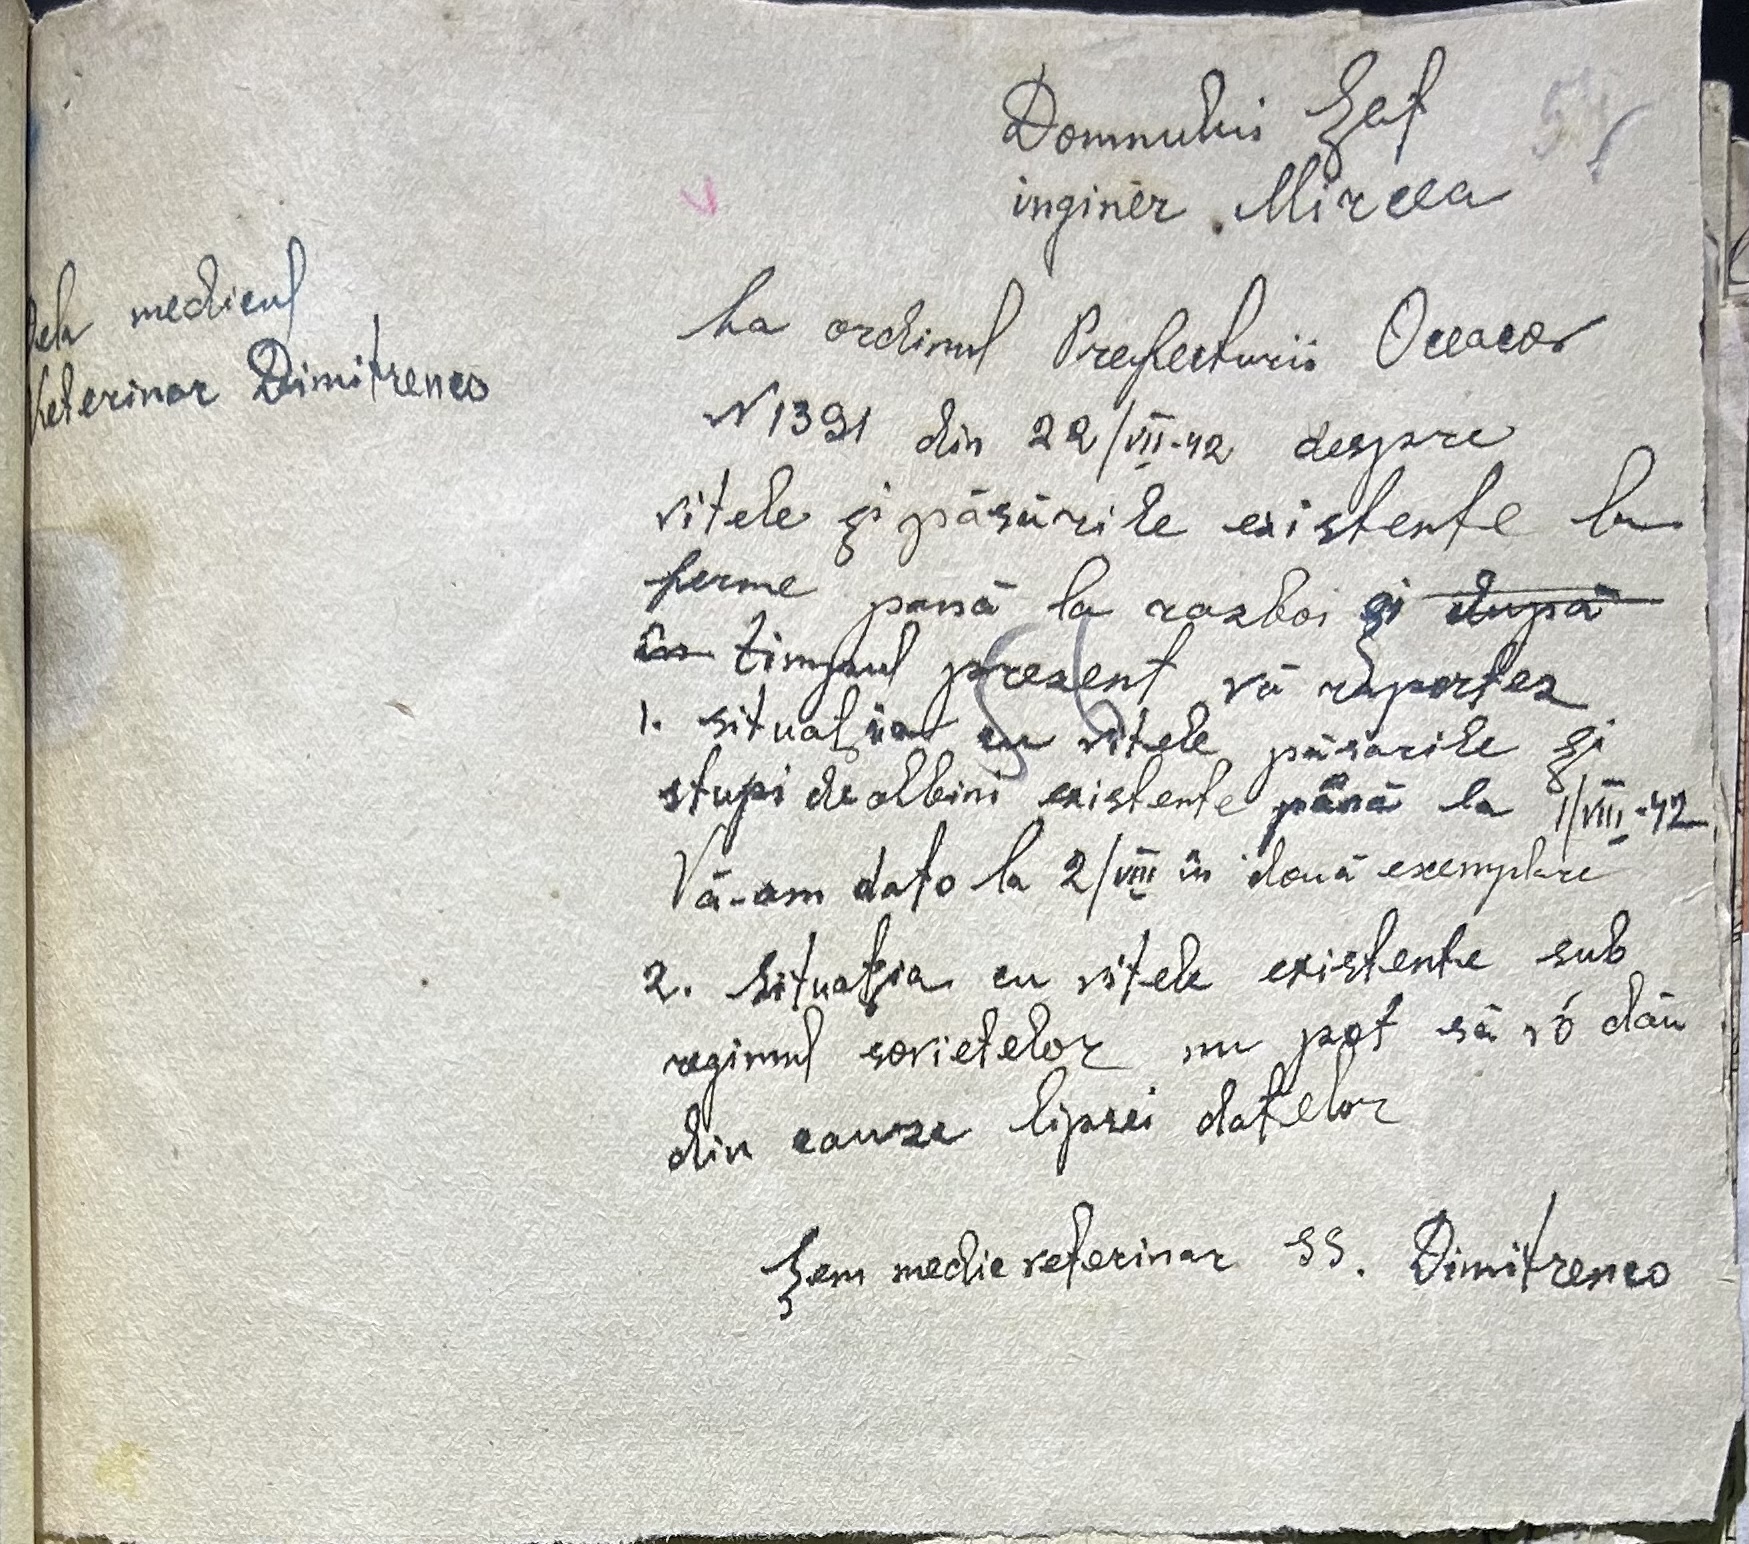 54
Domnului Șef
inginer Mircea
Dela medicul
Veterinar Dimitrenco
La ordinul Prefecturii Oceacov
N 1391 din 22/VII-42 despre
vitele și păsările existente la
ferme pănă la razboi și după
în timpul prezent vă raportez
1. situația cu vitele, păsarile și
stupi de albini existente pănă la 1/VIII-42
Vă-am dato la 2/VIII în două exemplare
2. Situația cu vitele existente sub
regimul sovietelor nu pot să vó dău
din cauze lipsei datelor
Șem medic veterinar SS. Dimitrenco